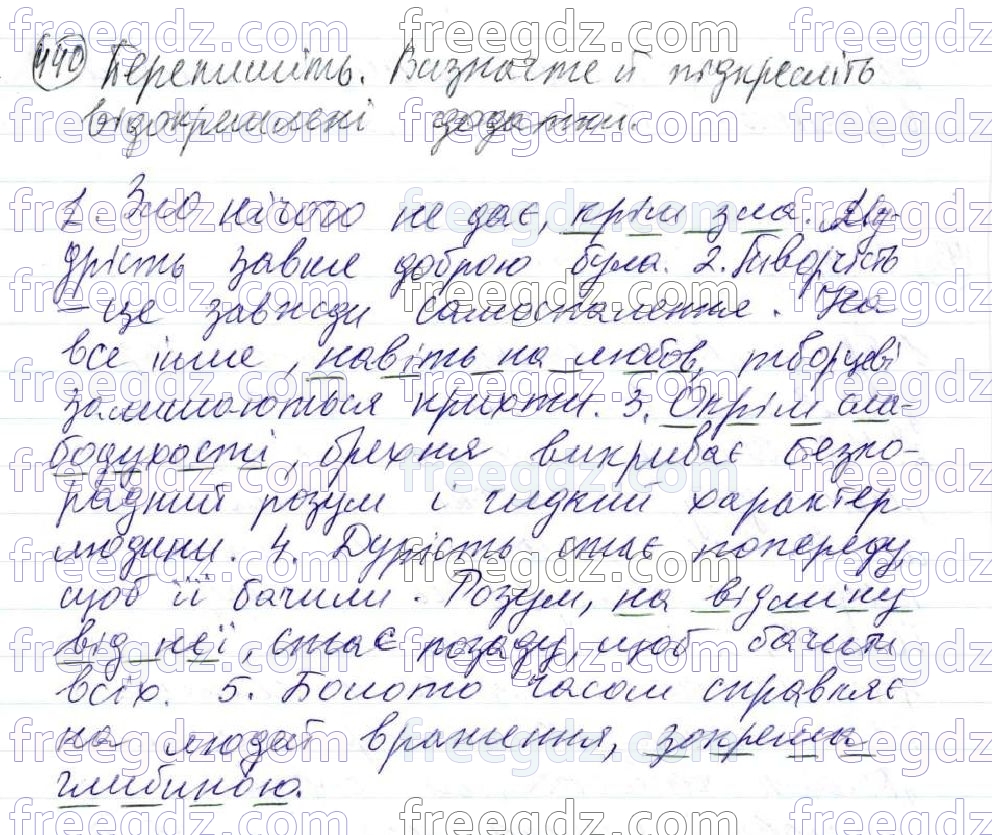 440 Перепишіть. Визначте й підкресліть
відокремлені додатки.
1. Зло нічого не дає, крім зла. Му-
дрість завше доброю була. 2. Творчість
– це завжди самоспалення. На
все інше, навіть на любов, творцеві
залишаються крихти. 3. Окрім сла-
бодухості, брехня викриває безпо-
радний розум і гидкий характер
людини. 4. Дурість стає попереду,
щоб її бачили. Розум, на відміну
від неї, стає позаду, щоб бачити
всіх. 5. Болото часом справляє
на людей враження, зокрема
глибиною.
freegdz.com